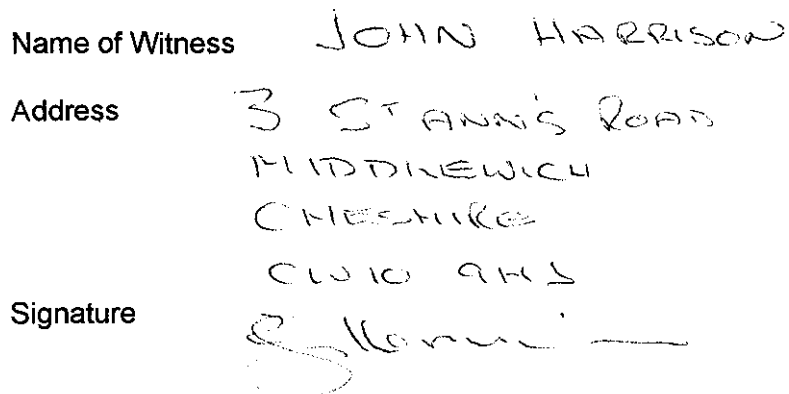 Name of Witness JOHN HARRISON
Address 3 ST ANN'S ROAD
MIDDLEWICH
CHESHIRE
CW10 9HJ
Signature